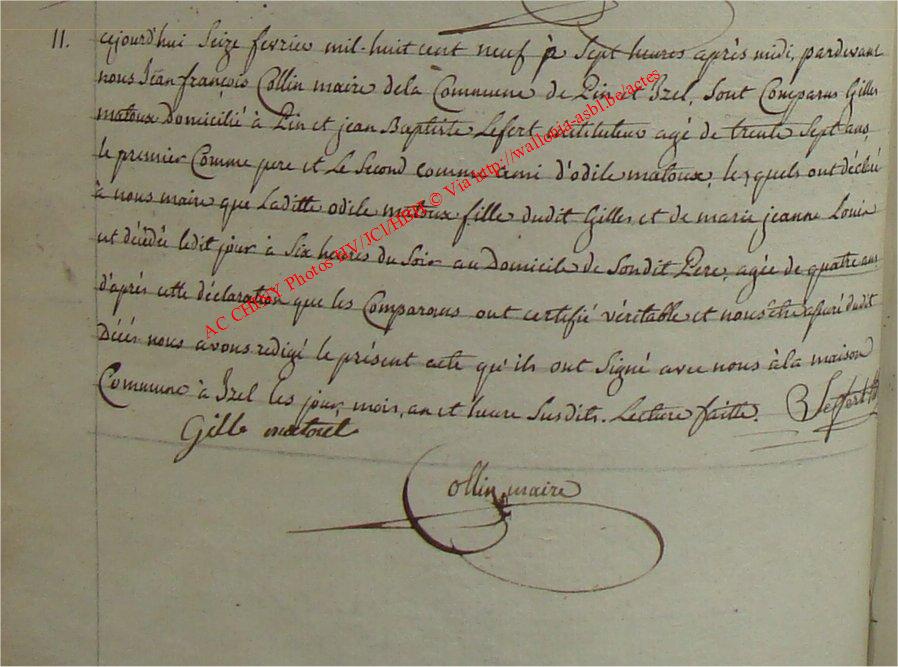 11. cejourd'hui Seize fevrier mil-huit cent neuf à Sept heures après midi, pardevant
nous Jean françois Collin maire dela Commune de Pin et Izel, Sont Comparus Gilles
matoux Domicilié à Pin et jean Baptiste Lefert instituteur agé de trente Sept ans
le premier Comme pere et Le Second comme ami d'odile matoux, lesquels ont déclaré
à nous maire que Laditte odile matoux fille dudit Gilles et de marie jeanne Louis
est décédée ledit jour à Six heures du Soir au Domicile de Sondit Pere, agée de quatre ans
d'après cette déclaration que les Comparans ont certifié véritable et nous être assuré dudit
Décés nous avons redigé le présent acte qu'ils ont Signé avec nous à la maison
Commune à Izel les jour, mois, an et heure Susdits. Lecture faitte.
Gille matoul
Collin maire
AC CHINY Photos HV/JCI/HBH © Via http://wallonia-asbl.be/actes